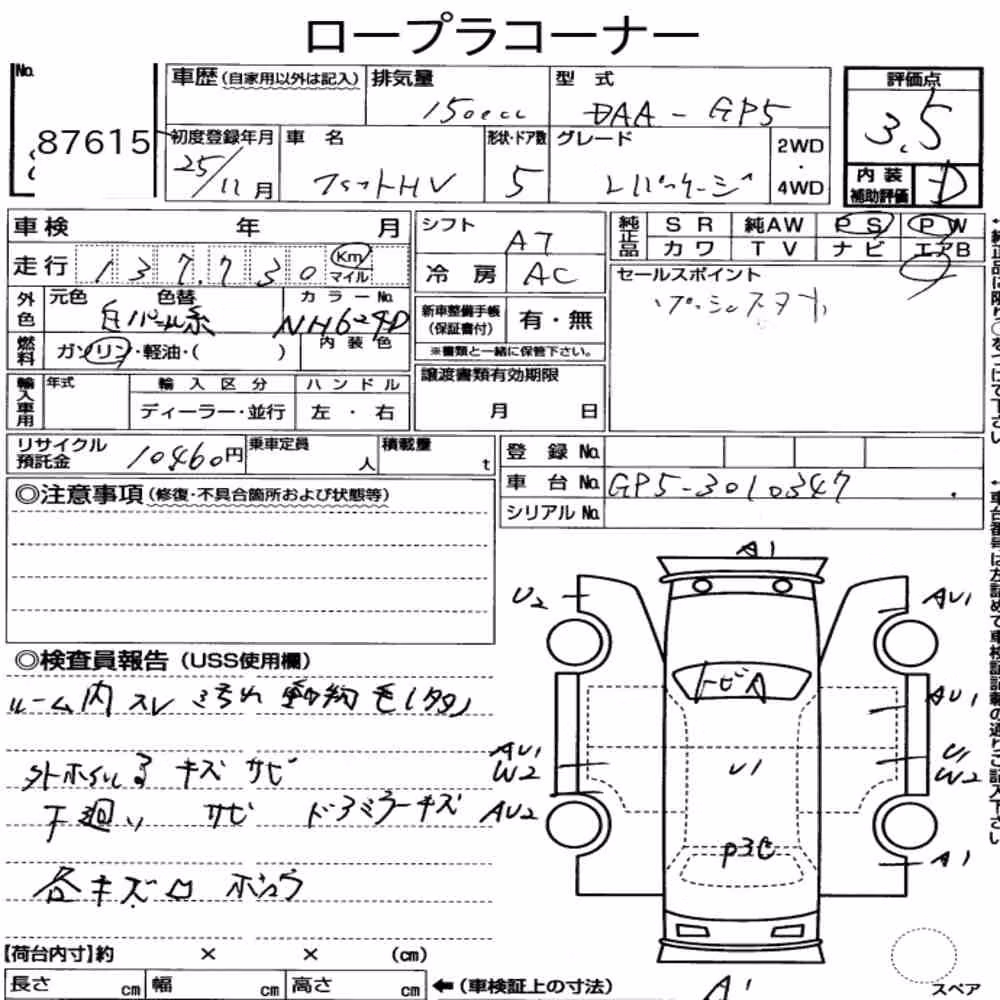 ロープラコーナー
No.
87615
車歴 (自家用以外は記入)
排気量
1500cc
型式
DAA - GP5
評価点
3.5
初度登録年月
25/11月
車名
フィットHV
形状・ドア数
5
グレード
Lパッケージ
2WD
・
4WD
内装
補助評価
D
車検 年 月
走行 137,730 Km マイル
シフト
AT
冷房 AC
純正品
SR 純AW PS PW
カワ TV ナビ エアB
セールスポイント
プッシュスタート
外色
元色 色替
白パール系
カラーNo.
NH624P
燃料
ガソリン・軽油・( )
内装色
新車整備手帳
(保証書付)
有・無
※書類と一緒に保管下さい。
輸入車用
年式
輸入区分
ディーラー・並行
ハンドル
左・右
譲渡書類有効期限
月 日
リサイクル
預託金
10460円
乗車定員
人
積載量
t
登録No.
車台No. GP5-3010347
シリアルNo.
◎注意事項 (修復・不具合箇所および状態等)
◎検査員報告 (USS使用欄)
ルーム内 スレ 汚れ 動物毛(多)
外ホイル キズ サビ
下廻り サビ ドアミラーキズ
各キズ凹
A1
U2
AU1
トビA
AU1
AU1
W2
U1
U1
W2
AU2
P3C
A1
A1
スペア
【荷台内寸】約 × × (cm)
長さ cm 幅 cm 高さ cm ←(車検証上の寸法)
↑純正品に限り○をつけて下さい
↑車台番号は左詰めで車検証記載の通りご記入下さい